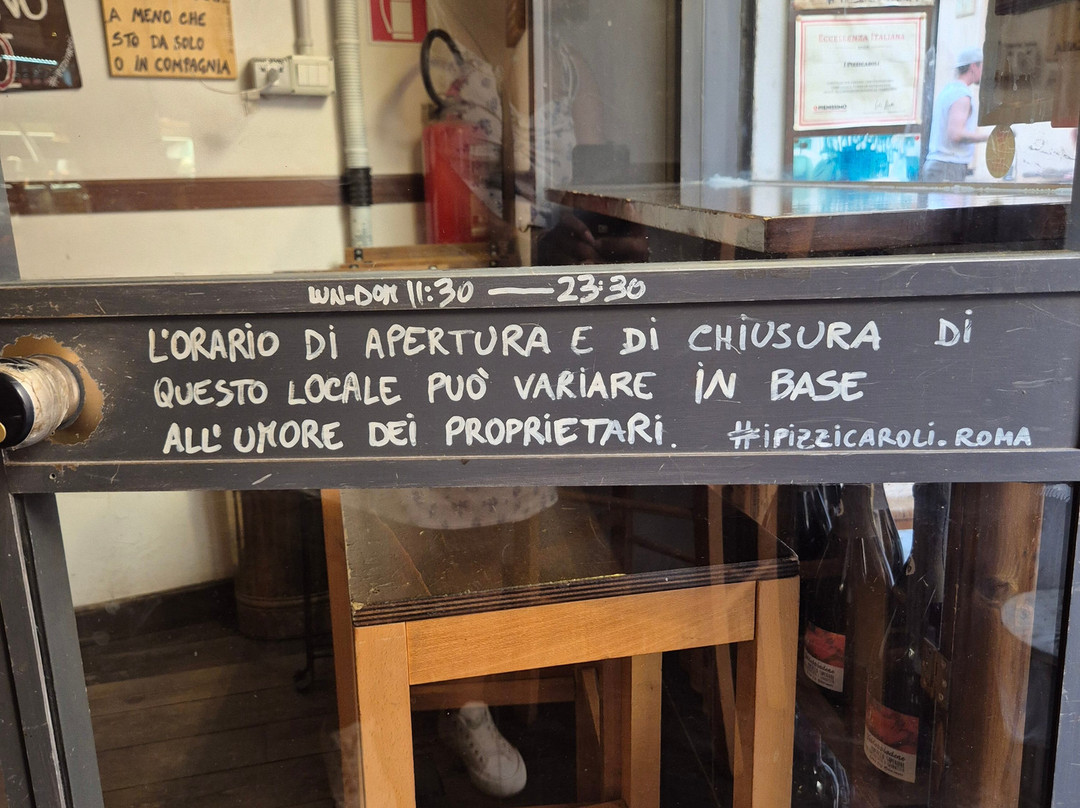 A MENO CHE
STO DA SOLO
O IN COMPAGNIA
ECCELLENZA ITALIANA
I PIZZICAROLI
LUN-DOM 11:30 — 23:30
L'ORARIO DI APERTURA E DI CHIUSURA DI
QUESTO LOCALE PUÒ VARIARE IN BASE
ALL'UMORE DEI PROPRIETARI. #IPIZZICAROLI.ROMA